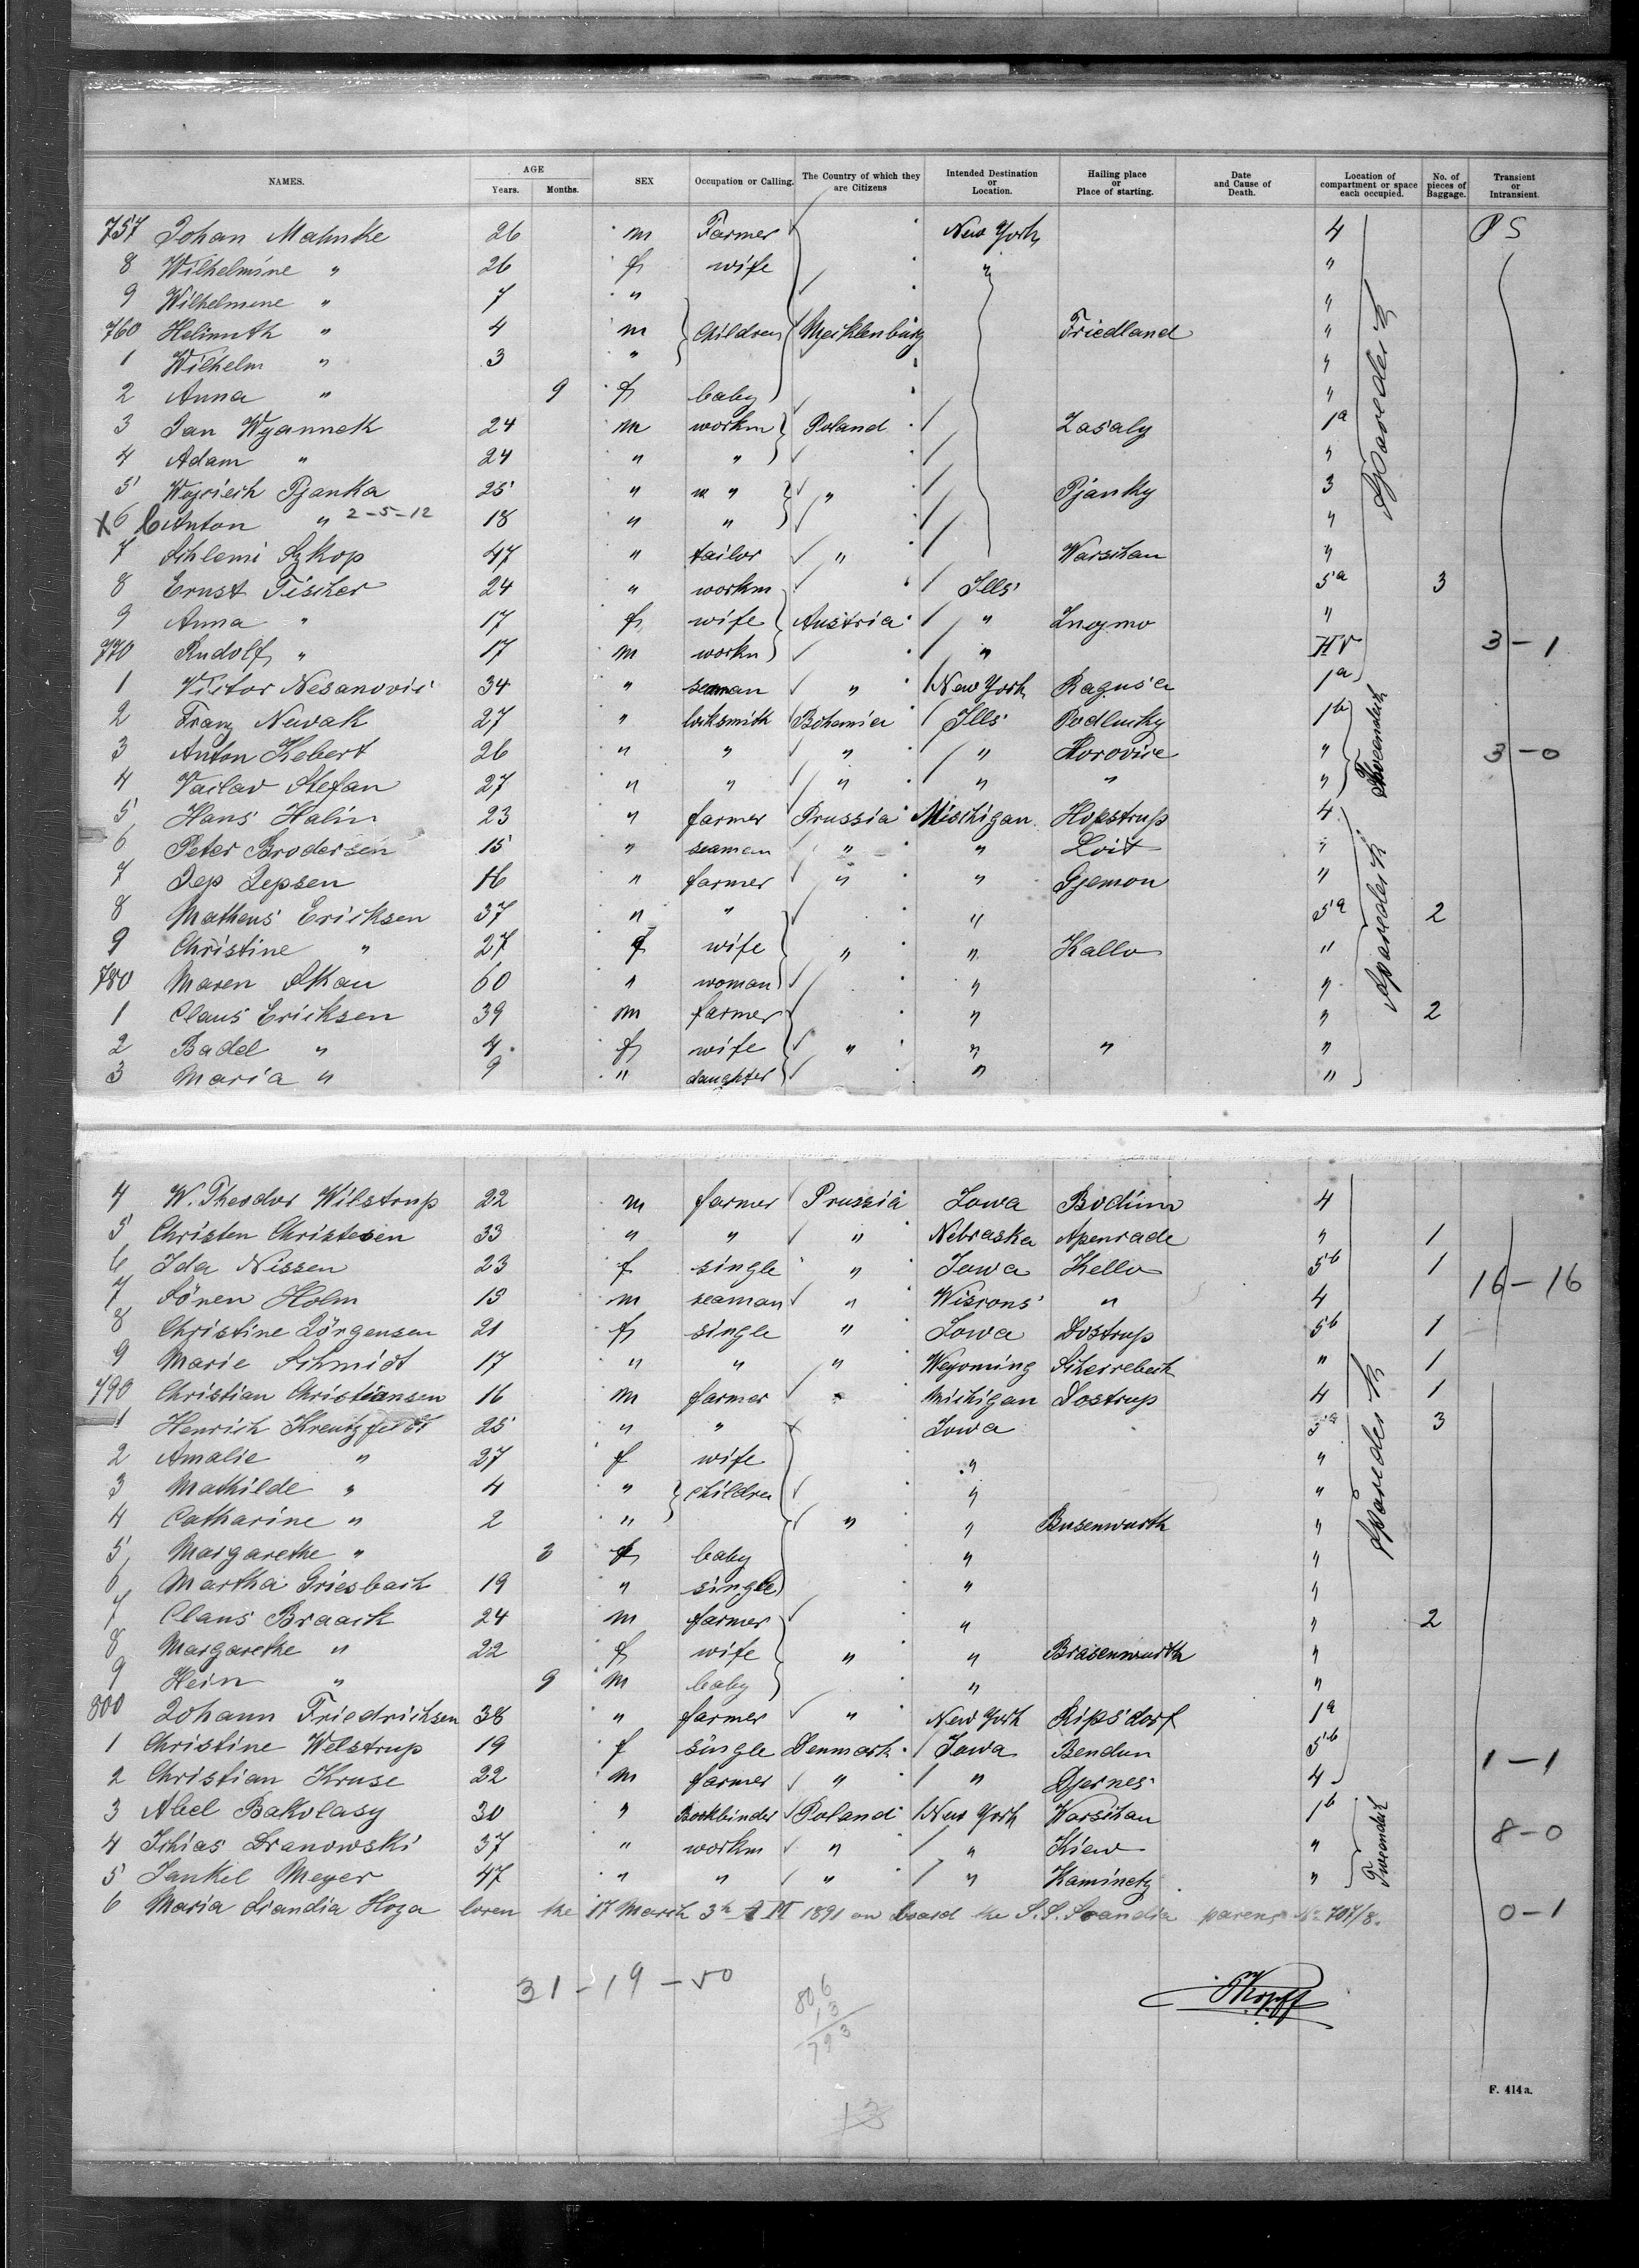 NAMES. AGE Years. Months. SEX Occupation or Calling. The Country of which they are Citizens Intended Destination or Location. Hailing place or Place of starting. Date and Cause of Death. Location of compartment or space each occupied. No. of pieces of Baggage. Transient or Intransient.
757 Johan Mahnke 26 m Farmer New York 4 P S
8 Wilhelmine " 26 f wife " "
9 Wilhelmine " 7 " "
760 Hellmuth " 4 m Children Mecklenburg Friedland "
1 Wilhelm " 3 " "
2 Anna " 9 f baby "
3 Jan Wyannek 24 m workm Poland Zasaly 1a
4 Adam " 24 " " "
5 Wojciech Pjanka 25 " " " Pjanky 3
X 6 Anton " 2-5-12 18 " " "
7 Schlemi Szkop 47 " tailor " Warschau "
8 Ernst Fischer 24 " workm Ills 5a 3
9 Anna " 17 f wife Austria " Znoymo "
770 Rudolf " 17 m workm " 3-1
1 Victor Nesanovic 34 " seaman " New York Ragusa 1a
2 Franz Nowak 27 " locksmith Bohemia Ills 1b
3 Anton Kebert 26 " " " " Horovice " 3-0
4 Vaclav Stefan 27 " " " " " "
5 Hans Halin 23 " farmer Prussia Michigan Hopstrup 4
6 Peter Brodersen 15 " seaman " " Loit "
7 Jep Jepsen 16 " farmer " " Gjemon "
8 Matheus Ericksen 37 " " " 5a 2
9 Christine " 27 f wife " " Kallo "
780 Maren Skau 60 " woman " "
1 Claus Ericksen 39 m farmer " " 2
2 Badel " 4 f wife " " " "
3 Maria " 9 " daughter " "
4 W. Theodor Wilstrup 22 m farmer Prussia Iowa Bodum 4
5 Christen Christesen 33 " " " Nebraska Apenrade " 1
6 Ida Nissen 23 f single " Iowa Kello 5b 1 16-16
7 Sören Holm 15 m seaman " Wiscons " 4
8 Christine Jörgensen 21 f single " Iowa Dostrup 5b 1
9 Marie Schmidt 17 " " " Wyoming Scherrebeck " 1
790 Christian Christiansen 16 m farmer " Michigan Dostrup 4 1
1 Henrich Kreutzfeldt 25 " " Iowa 5a 3
2 Amalie " 27 f wife " "
3 Mathilde " 4 " children " "
4 Catharine " 2 " " " Busenwurth "
5 Margarethe " 3 f baby " "
6 Martha Griesbach 19 " single " "
7 Claus Braack 24 m farmer " " 2
8 Margarethe " 22 f wife " " Brasenwurth "
9 Hein " 9 m baby " "
800 Johann Friedrichsen 38 " farmer " New York Ripsdorf 1a
1 Christine Welstrup 19 f single Denmark Iowa Bendun 5b 1-1
2 Christian Kruse 22 m farmer " " Djernes 4
3 Abel Bakolasy 30 " Bookbinder Poland New York Warschau 1b
4 Schias Dranowski 37 " workm " " Kiew " 8-0
5 Jankel Meyer 47 " " " " Kaminetz "
6 Maria Scandia Hoza boren the 17 March 3h A M 1891 on board the S.S. Scandia parens No 707/8. 0-1
31-19-50
806
13
793
13
F. 414 a.